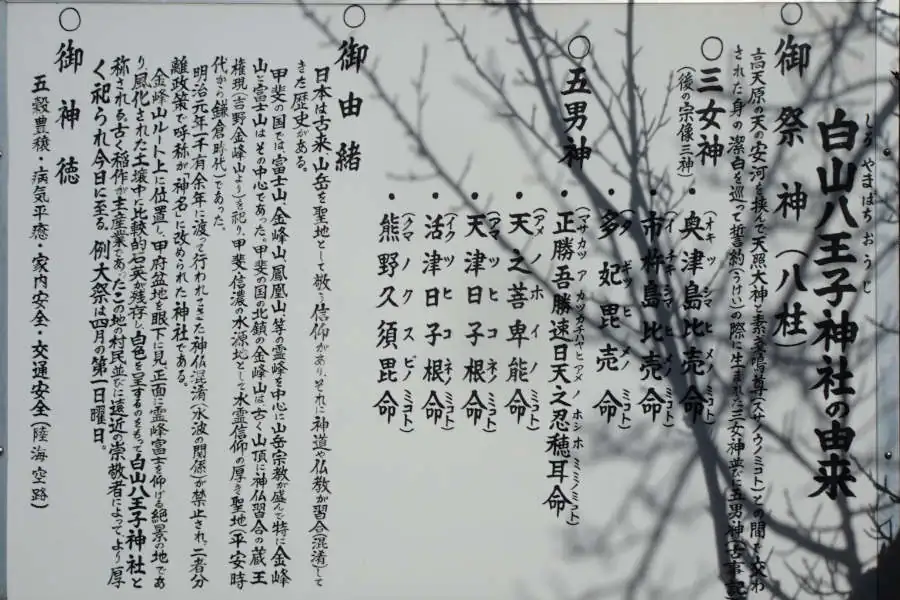 白山八王子神社の由来
しろやまはちおうじ
○御祭神(八柱)
高天原の天の安河を挟んで天照大神と素戔嗚尊(スサノウノミコト)との間で交わ
された身の潔白を巡って誓約(うけい)の際に生まれた三女神並びに五男神(古事記)
○三女神
(後の宗像三神)
・奥津島比売命
(オキツシマヒメノミコト)
・市杵島比売命
(イチキシマヒメノミコト)
・多妃毘売命
(タギツヒメノミコト)
○五男神
・正勝吾勝速日天之忍穂耳命
(マサカツアカツカチハヤヒアメノホシホミミノミコト)
・天之菩卑能命
(アメノホイノミコト)
・天津日子根命
(アマツヒコネノミコト)
・活津日子根命
(イクツヒコネノミコト)
・熊野久須毘命
(クマノクスビノミコト)
○御由緒
日本は古来、山岳を聖地として敬う信仰があり、それに神道や仏教が習合(混淆)して
きた歴史がある。
甲斐の国では、富士山、金峰山、鳳凰山等の霊峰を中心に山岳宗教が盛んで特に金峰
山と富士山はその中心であった。甲斐の国の北鎮の金峰山は古く山頂に神仏習合の蔵王
権現(吉野金峰山より)を祀り、甲斐、信濃の水源地として水霊信仰の厚き聖地(平安時
代から鎌倉時代)であった。
明治元年一千有余年に渡って行われてきた神仏混淆(水波の関係)が禁止され、二者分
離政策で呼称が「神名」に改められた神社である。
金峰山ルート上に位置し、甲府盆地を眼下に見、正面に霊峰富士を仰げる絶景の地であ
り、風化された土壌中に比較的石英が残存し、白色を呈するのをもって白山八王子神社と
称される。古く稲作が主産業であったこの地の村民並びに遠近の崇敬者によってより厚
く祀られ今日に至る。例大祭は四月の第一日曜日。
○御神徳
五穀豊穣・病気平癒・家内安全・交通安全(陸海空路)